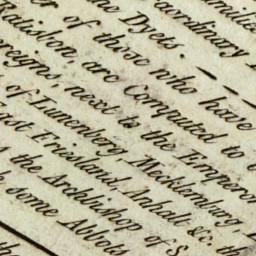 amilies
aordinary
the Dyets.
er of those who have
Ratisbon, are Computed to
ereigns next to the Empero
of Lunenberg, Mecklenburg,
East Friesland, Anhalt &c. th
s the Archbishop of S
some Abbots
the